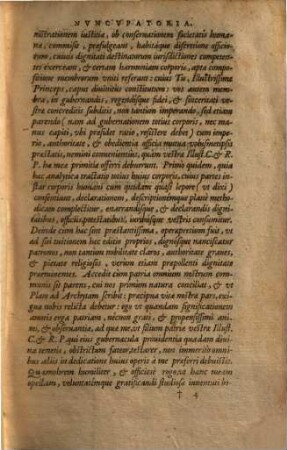 NVNCVPATORIA.
ministrationem iustitia, ob conseruationem societatis humana,
commissa, præfulgeant, habitáque discretione officiorum,
cuiusq; dignitati destinatarum iurisdictiones competenter
exerceant, & certam harmoniam corporis, apta compositione
membrorum vniti referant: cuius Tu, Illustrissime
Princeps, caput diuinitus constitutum: vos autem membra,
in gubernandis, regendisque fidei, & sinceritati vestræ
concredidis subditis, non tantùm imperando, sed etiam
parendo (nam ad gubernationem totius corporis, nec manus
capiti, vbi præsidet ratio, resistere debet) cum imperio,
authoritate, & obedientia officia mutua volusinetipsis
præstatis, nemini conuenientiùs, quàm vestræ Illust. C. & R.
P. hæ meæ primitiæ offerri debuerunt. Primò quidem, quia
hæc analytica tractatio totius huius corporis, cuius partes instar
corporis humani cum quodam quasi lepore (vt deci)
consentiunt, declarationem, descriptionémque plani methodicam
complectitur, enarrandisque, & declarandis dignitatibus,
officiis, potestatibus, vrbibusque vestris consumitur.
Deinde cùm hæc sint præstantissima, operæpretium fuit, vt
ad sui tuitionem hæc editio proprios, dignisque nanciscatur
patronos, non tantùm nobilitate claros, authoritate graues,
& pietate religiosos, verùm etiam propellenti dignitate
præeminentes. Accedit cùm patria omnium nostrûm communis
sit parens, cui nos primùm natura conciliat, & vt
Plato ad Archytam scribit; præcipua vita nostra pars, exigua
nobis relicta debetur: ego vt quandam significationem
amoris erga patriam, nec non grati, & propensissimi animi,
& obseruantiæ, ad quæ me, vt filium patriæ vestra Illust.
C. & R. P. qui eius gubernacula prouidentia quadam diuina
tenetis, obstrictum fateor, testarer, non immeritò omnibus
aliis in dedicatione huius operis à me præferri debuistis.
Quamobrem humiliter, & officiosè rogoxa hanc meam
opellam, voluntatémque gratificandi studiosè inuentuti li-
† 4